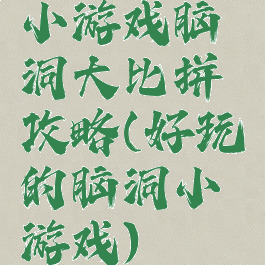 小游戏脑
洞大比拼
攻略(好玩
的脑洞小
游戏)